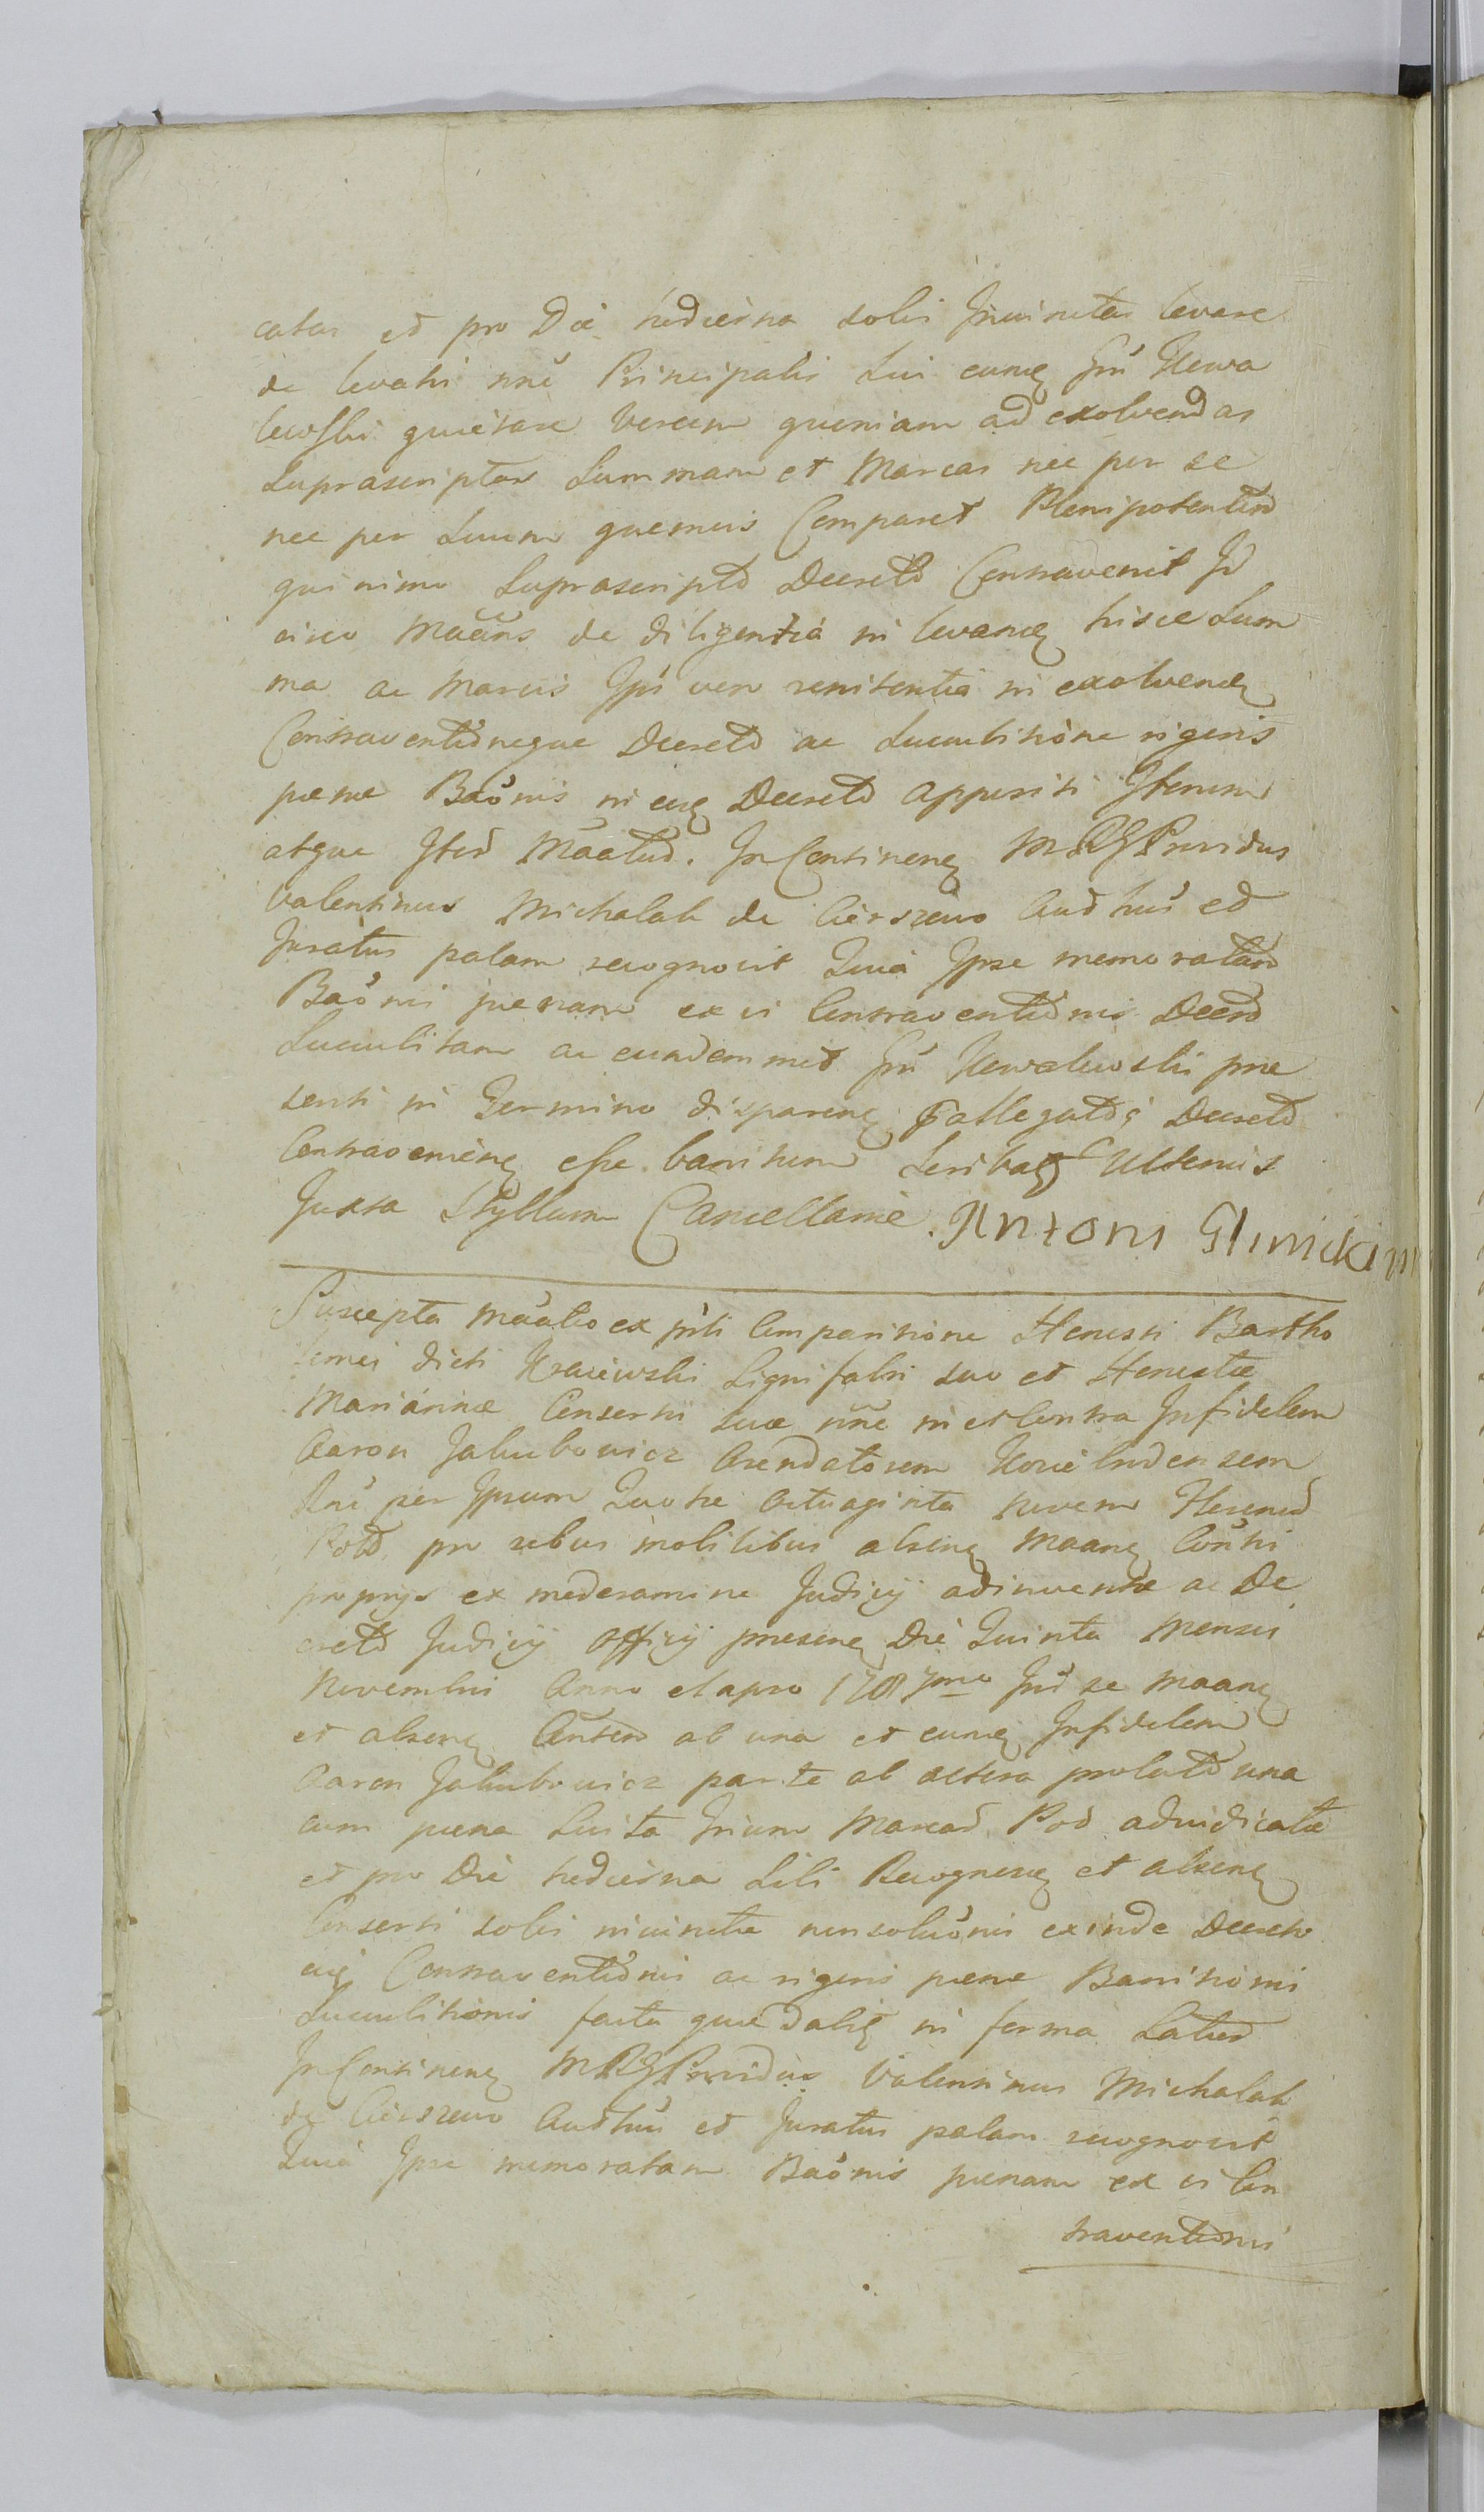 catas et pro Die hodierna solvi Iniunctas levare
de levatis nne Principalis Sui eunq Gn Kowa
lewski quietare Verum quoniam ad exolvendas
Suprascriptas Summam et Marcas nec per se
nec per Suum quemvis Comparet Plenipotentem
quinimo Suprascripto Decreto Contravenit Id
circo Maans de diligentia in levanq hisce Sum
ma ac Marcis Ipsi vero renitentia in exolvenq
Contraventioneque Decreto ac Succubitione rigoris
poenae Baonis in eiusq Decreto appositi Iterum
atque Itero Maatur. In Continenq Providus
Valentinus Michalak de Cierszewo et
Juratus palam recognovit Quia Ipse memoratam
Baonis poenam ex vi Contraventionis Decreto
Succubitam ac eundemmet Gn Kowalewski prae
senti in Termino disparenq allegato Decreto
Contravenienq esse banitum
Juxta Styllum Cancellariae. Antoni Glinicki m
Suscepta Maatio ex parti Comparitione Honesti Bartho
lomei dicti Kraiewski Lignifabri suo et Honestae
Mariannae Consortis suae nne in et Contra Infidelem
Aaron Jakubowicz Arendatorem
per Ipsum Quotae octuaginta novem Florenor
Polo pro rebus mobilibus absenq Maanq Consorti
proprys ex moderamine Judicy adinventae ac De
creto Judicy Officy presenq Die Quinta Mensis
Novembris Anno elapso 1787mo Int se Maanq
et absenq Consor ab una et eunq Infidelem
Aaron Jakubowicz parte ab altera prolato una
cum poena Luita Trium Marcar Pol adiudicatae
et pro Die hodierna Sibi Recognosq et absenq
Consorti solvi iniunctae nonsolutionis exinde Decreto
eiq Contraventionis ac rigoris poenae Bannitionis
Succubitionis facta quae dabiq in forma Latior
In Continenq Providus Valentinus Michalak
de Cierszewo et Juratus palam recognovit
Quia Ipse memoratam Baonis poenam ex vi Con
traventionis